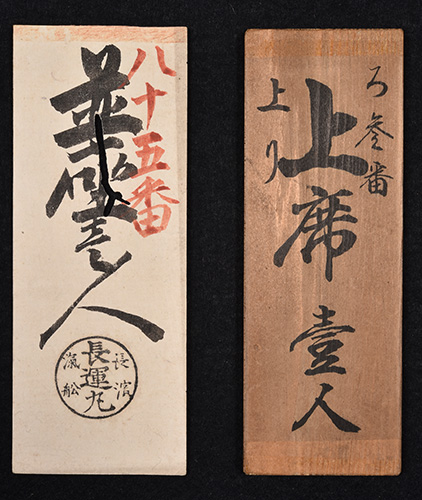 ろ参番
上席壹人
上り
八十五番
並壹人
長濱
長運丸
滊舩